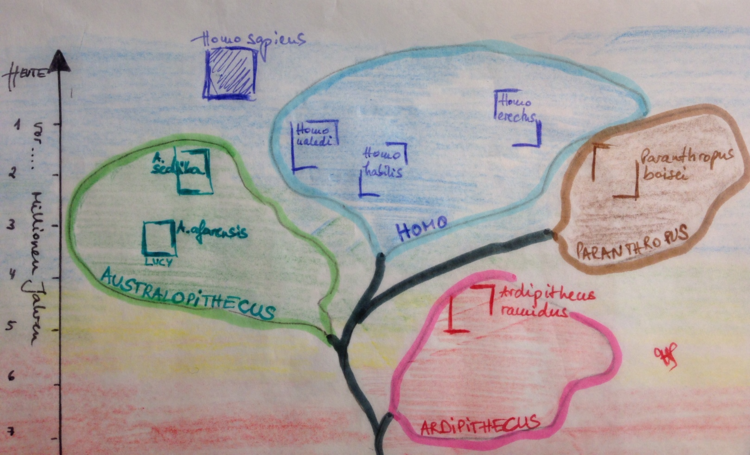 Homo sapiens
HEUTE
1
2
3
4
5
6
7
vor.... Millionen Jahren
Homo
naledi
Homo
habilis
Homo
erectus
HOMO
Paranthropus
boisei
PARANTHROPUS
A.
sediba
A. afarensis
LUCY
AUSTRALOPITHECUS
Ardipithecus
ramidus
ARDIPITHECUS